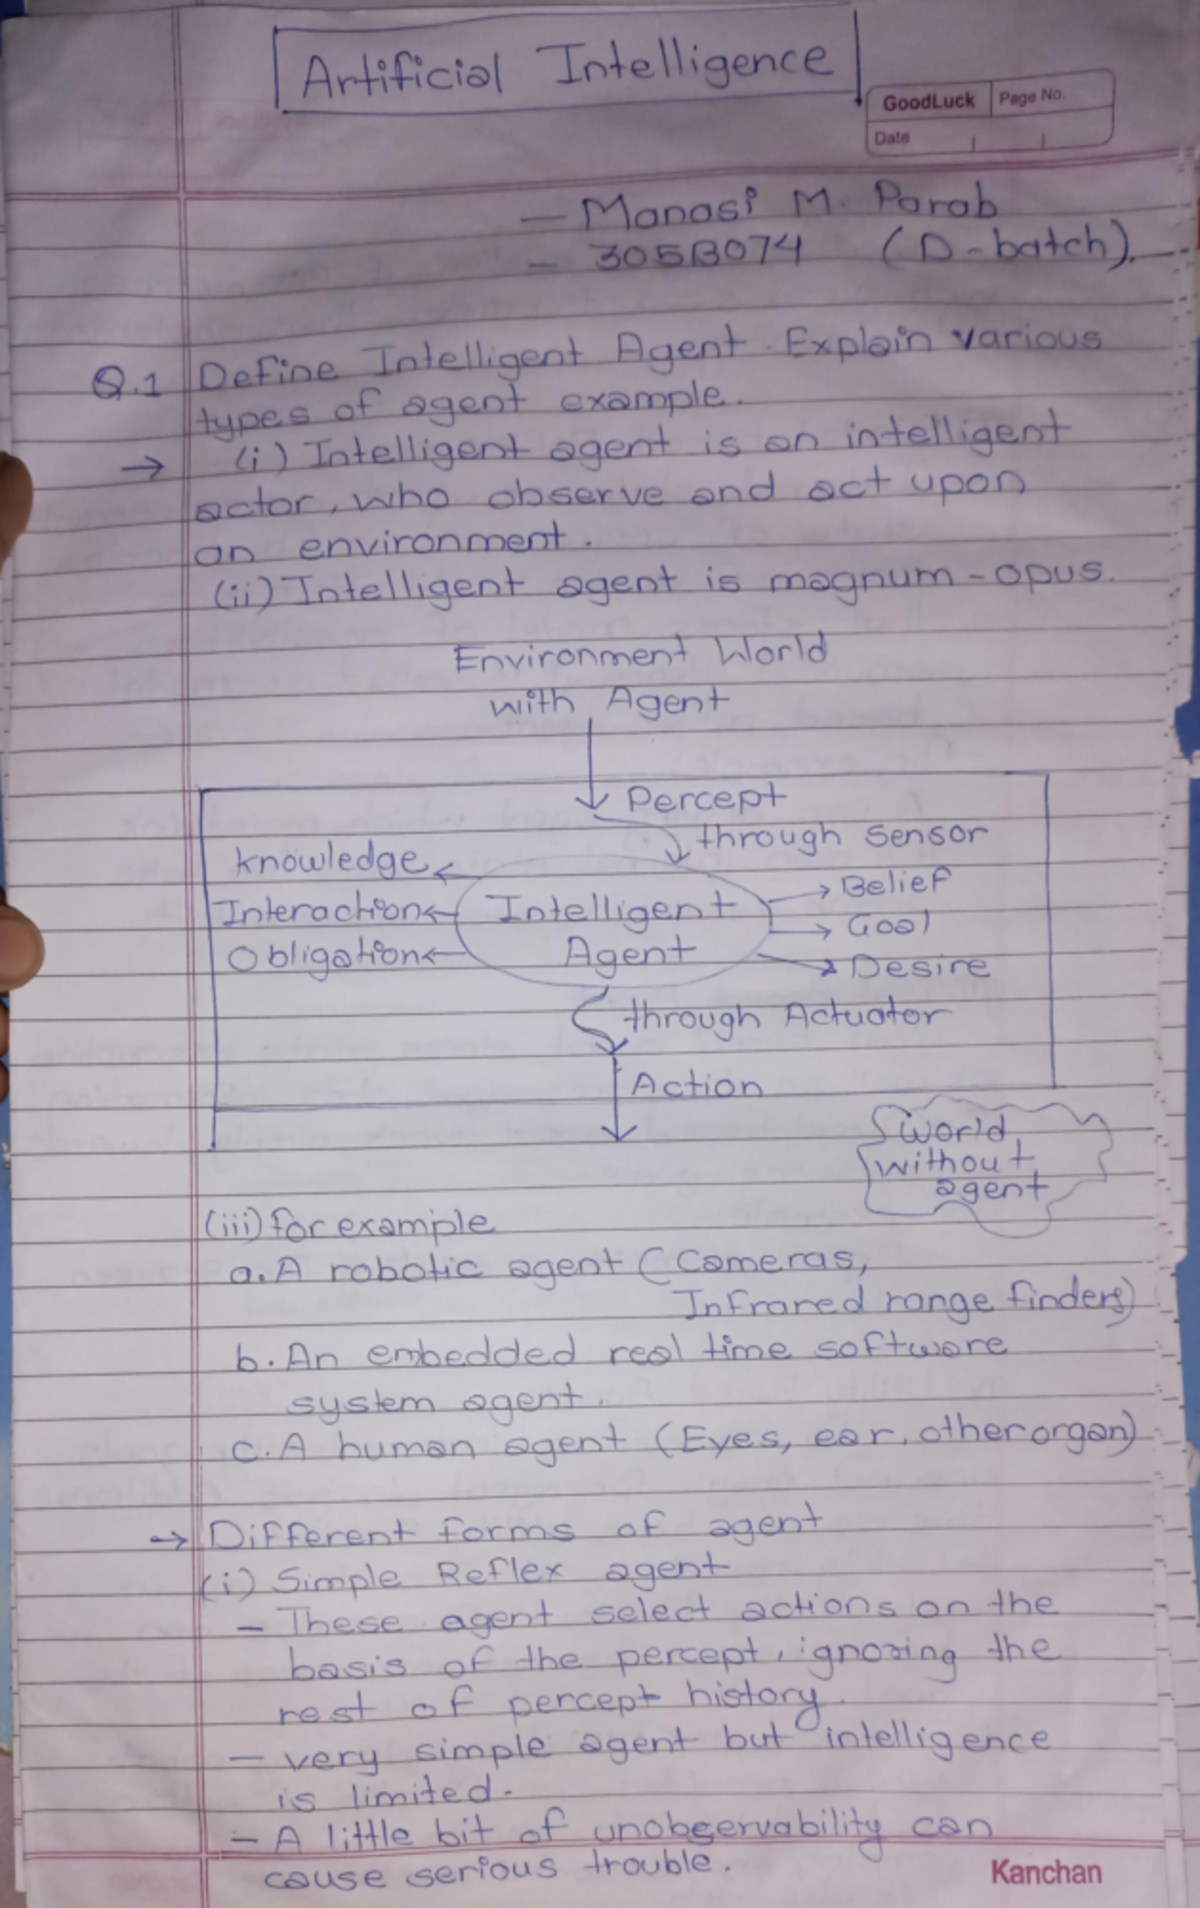 Artificial Intelligence
GoodLuck Page No.
Date
- Manasi M. Parab
- 305B074 (D-batch).
Q.1 Define Intelligent Agent. Explain various
types of agent example.
→ (i) Intelligent agent is an intelligent
actor, who observe and act upon
an environment.
(ii) Intelligent agent is magnum-opus.
Environment World
with Agent
Percept
through sensor
knowledge
Interaction
Obligation
Intelligent
Agent
Belief
Goal
Desire
through Actuator
Action
World
without
agent
(iii) for example
a. A robotic agent (Cameras,
Infrared range finders)
b. An embedded real time software
system agent.
c. A human agent (Eyes, ear, other organ)
→ Different forms of agent
(i) Simple Reflex agent
- These agent select actions on the
basis of the percept, ignoring the
rest of percept history.
- very simple agent but intelligence
is limited.
- A little bit of unobservability can
cause serious trouble.
Kanchan